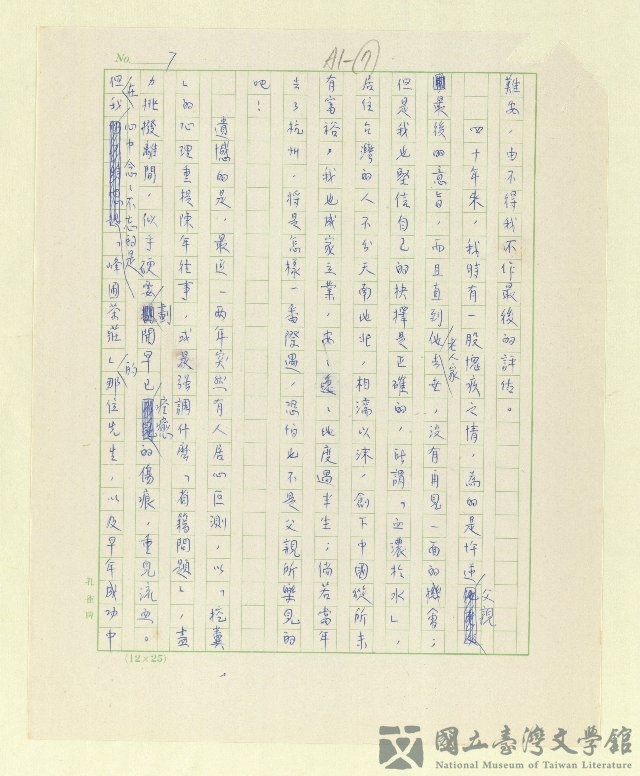 No. 7
A1-(7)
難安，由不得我不作最後的評估。
四十年來，我時有一股愧疚之情，為的是忤逆父親
最後的意旨，而且直到他老人家去世，沒有再見一面的機會；
但是我也堅信自己的抉擇是正確的，所謂「血濃於水」，
居住台灣的人不分天南地北，相濡以沫，創下中國從所未
有富裕，我也成家立業，安安穩穩地度過半生；倘若當年
去了杭州，將是怎樣一番際遇，恐怕也不是父親所樂見的
吧！
遺憾的是，最近一兩年突然有人居心叵測，以「挖糞
」的心理重提陳年往事，或是強調什麼「省籍問題」，盡
力挑撥離間，似乎硬要劃開早已痊癒的傷痕，重見流血。
但我在心中念念不忘的是「峰圃茶莊」的那位先生，以及早年成功中
孔雀牌
(12×25)
國立臺灣文學館
National Museum of Taiwan Literature